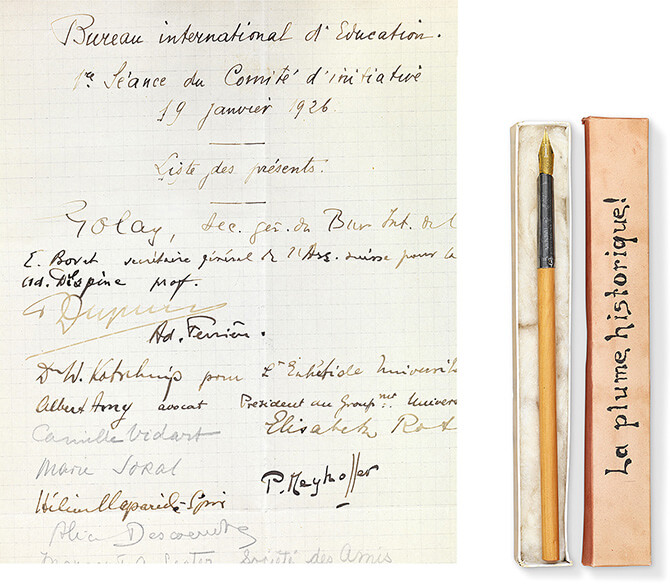 Bureau international d'Education.
1re Séance du Comité d'initiative
19 janvier 1926
Liste des présents.
Golay, sec. gén. du Bur. Int. de l
E. Bovet secrétaire général de l'Ass. suisse pour la
Ad. Espine prof.
Dupuis
Ad. Ferrière.
Dr W. Kotschnig pour L'Entr'aide Universit
Albert avocat Président du Groupmt. Univers
Camille Vidart Elisabeth Rot
Marie Soral
P. Meyhoffer
Hélène Claparède-Spir
Alice Descoeudres
Société des Amis
La plume historique!